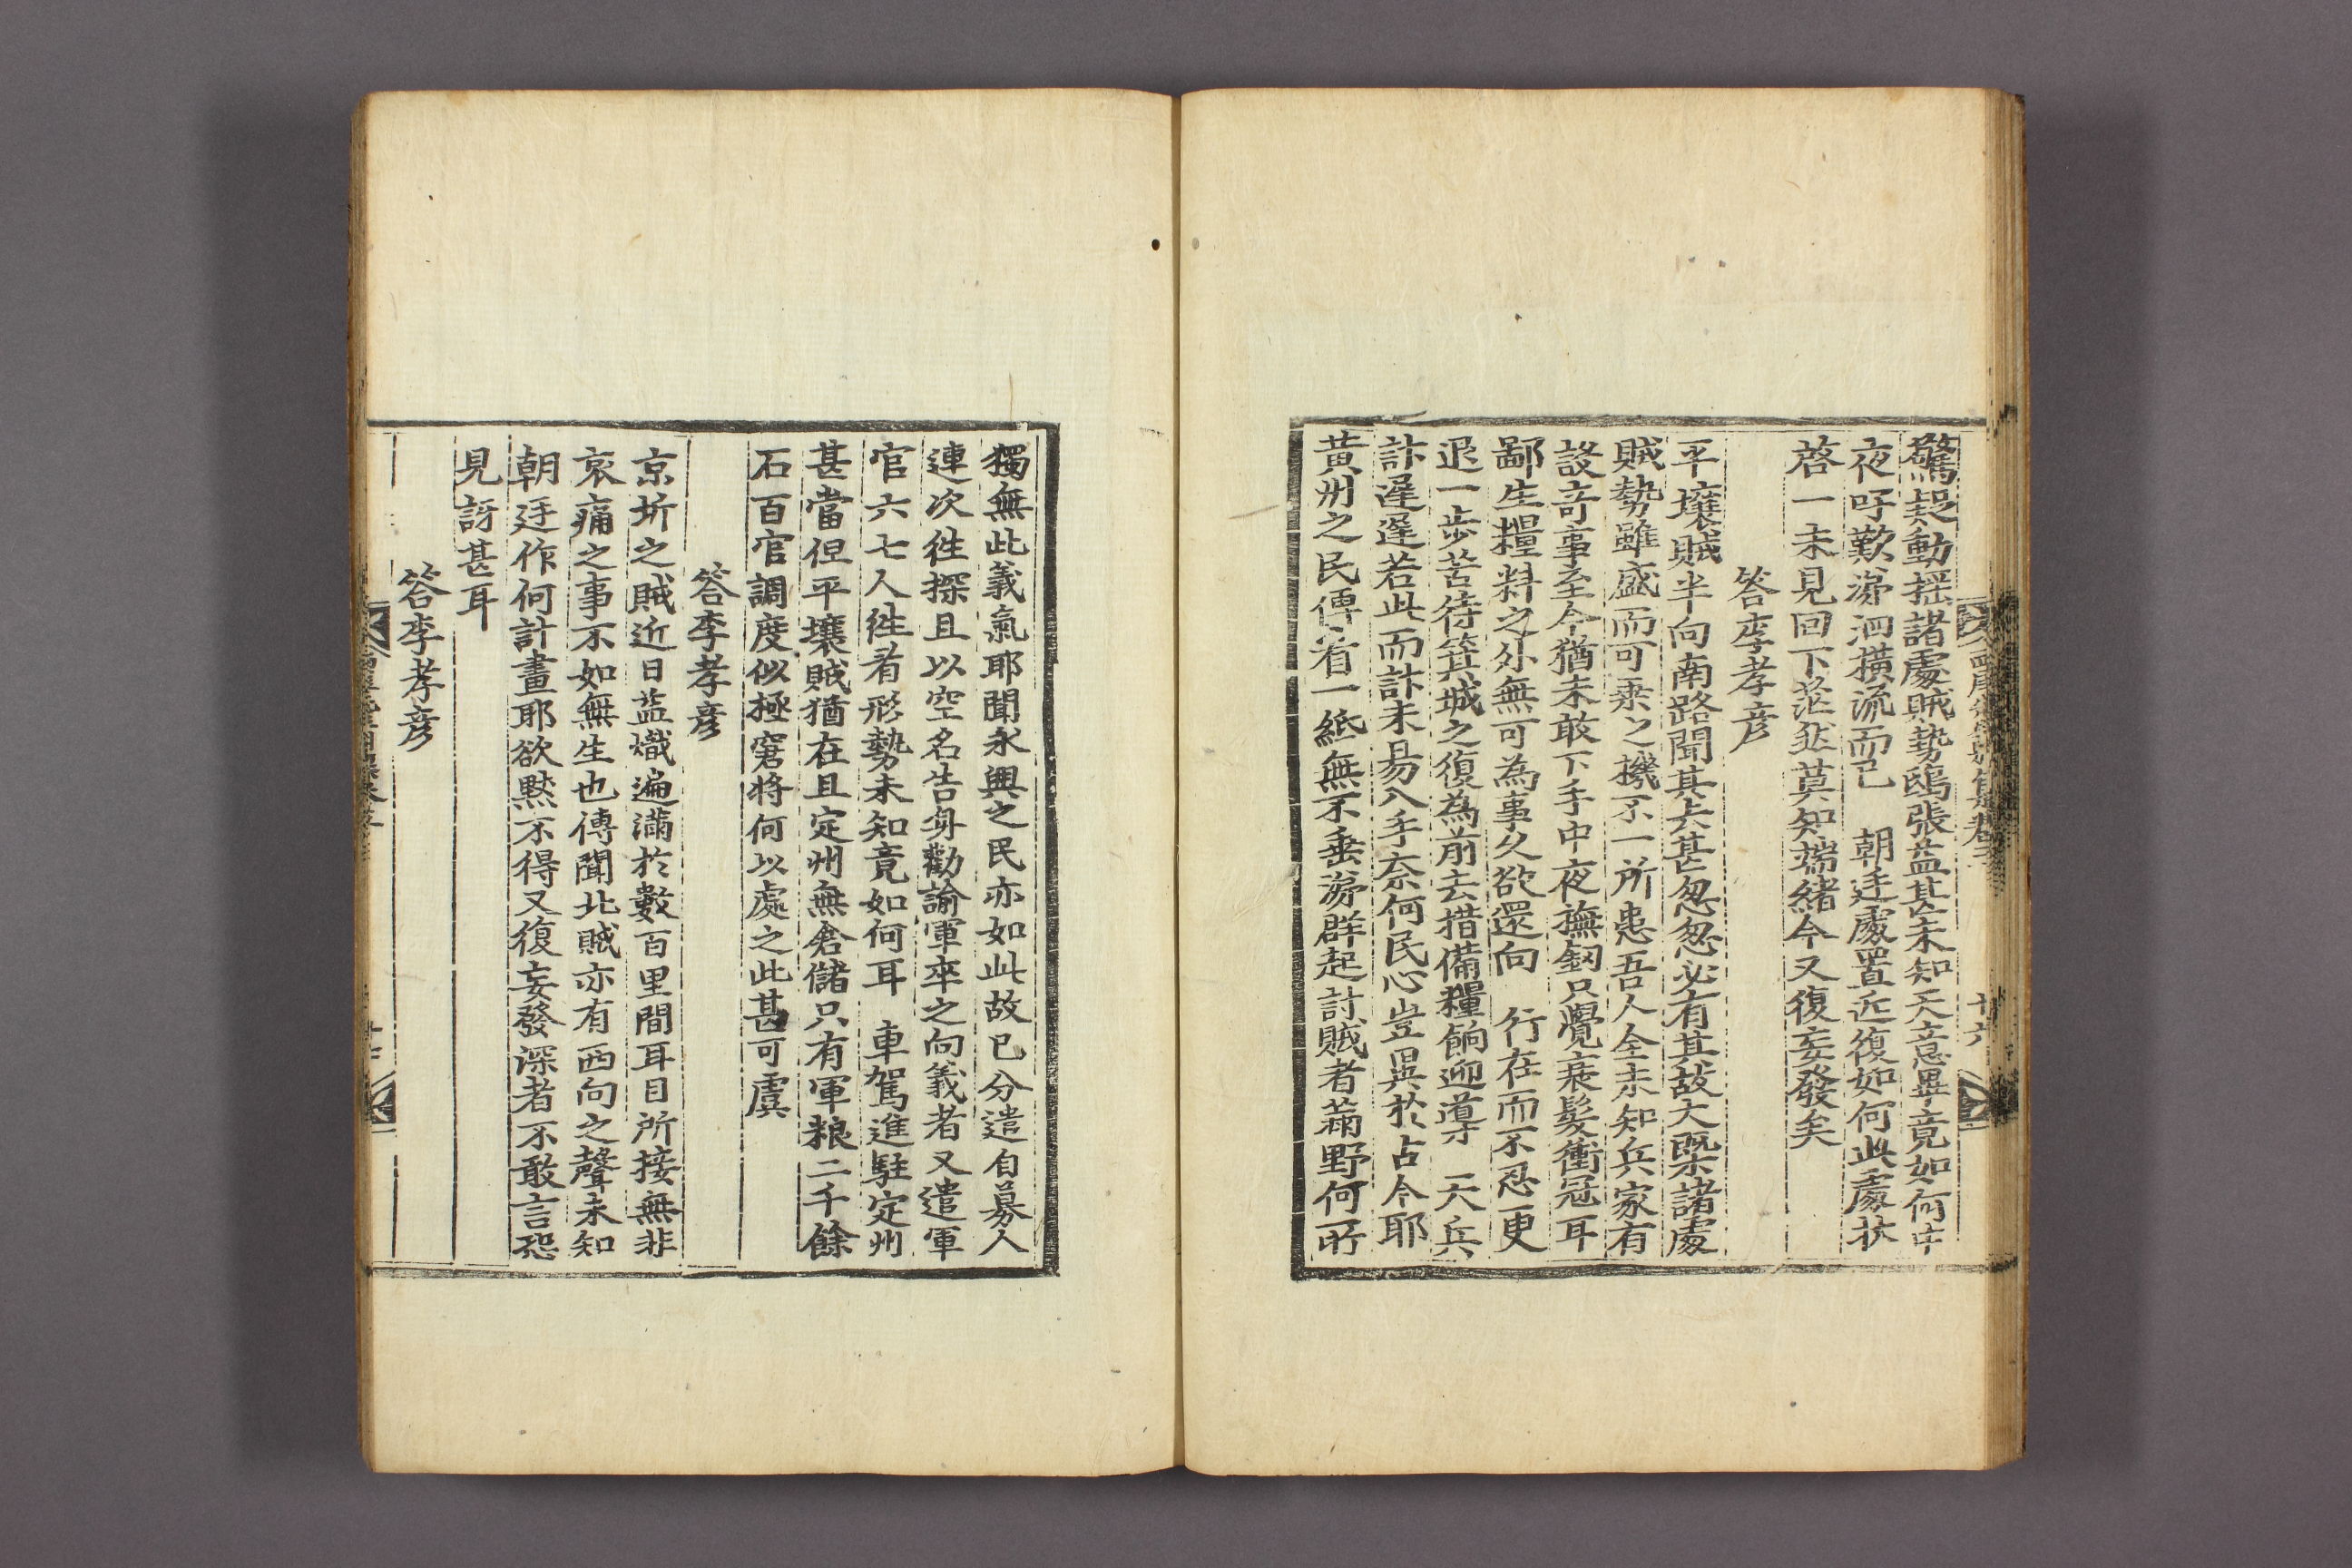 驚疑動搖諸處賊勢鴟張益甚未知天意畢竟如何中
夜吁歎涕泗橫流而已 朝廷處置近復如何此處狀
啓一未見回下茫然莫知端緒今又復妄發矣
答李孝彦
平壤賊半向南路聞其去甚忽忽必有其故大槩諸處
賊勢雖盛而可乘之機不一所患吾人全未知兵家有
設奇事至今猶未敢下手中夜撫釰只覺衰髮衝冠耳
鄙生糧料之外無可為事久欲還向 行在而不忍更
退一步苦待箕城之復為前去措備糧餉迎導 天兵
計遲遲若此而計未易入手奈何民心豈異於古今耶
黃州之民傳看一紙無不垂涕群起討賊者蔽野何所
十六
獨無此義氣耶聞永興之民亦如此故已分遣自募人
連次徃探且以空名告身勸諭軍卒之向義者又遣軍
官六七人徃看形勢未知竟如何耳 車駕進駐定州
甚當但平壤賊猶在且定州無倉儲只有軍粮二千餘
石百官調度似極窘將何以處之此甚可虞
答李孝彦
京圻之賊近日益熾遍滿於數百里間耳目所接無非
哀痛之事不如無生也傳聞北賊亦有西向之聲未知
朝廷作何計畫耶欲默不得又復妄發深者不敢言恐
見訝甚耳
答李孝彦